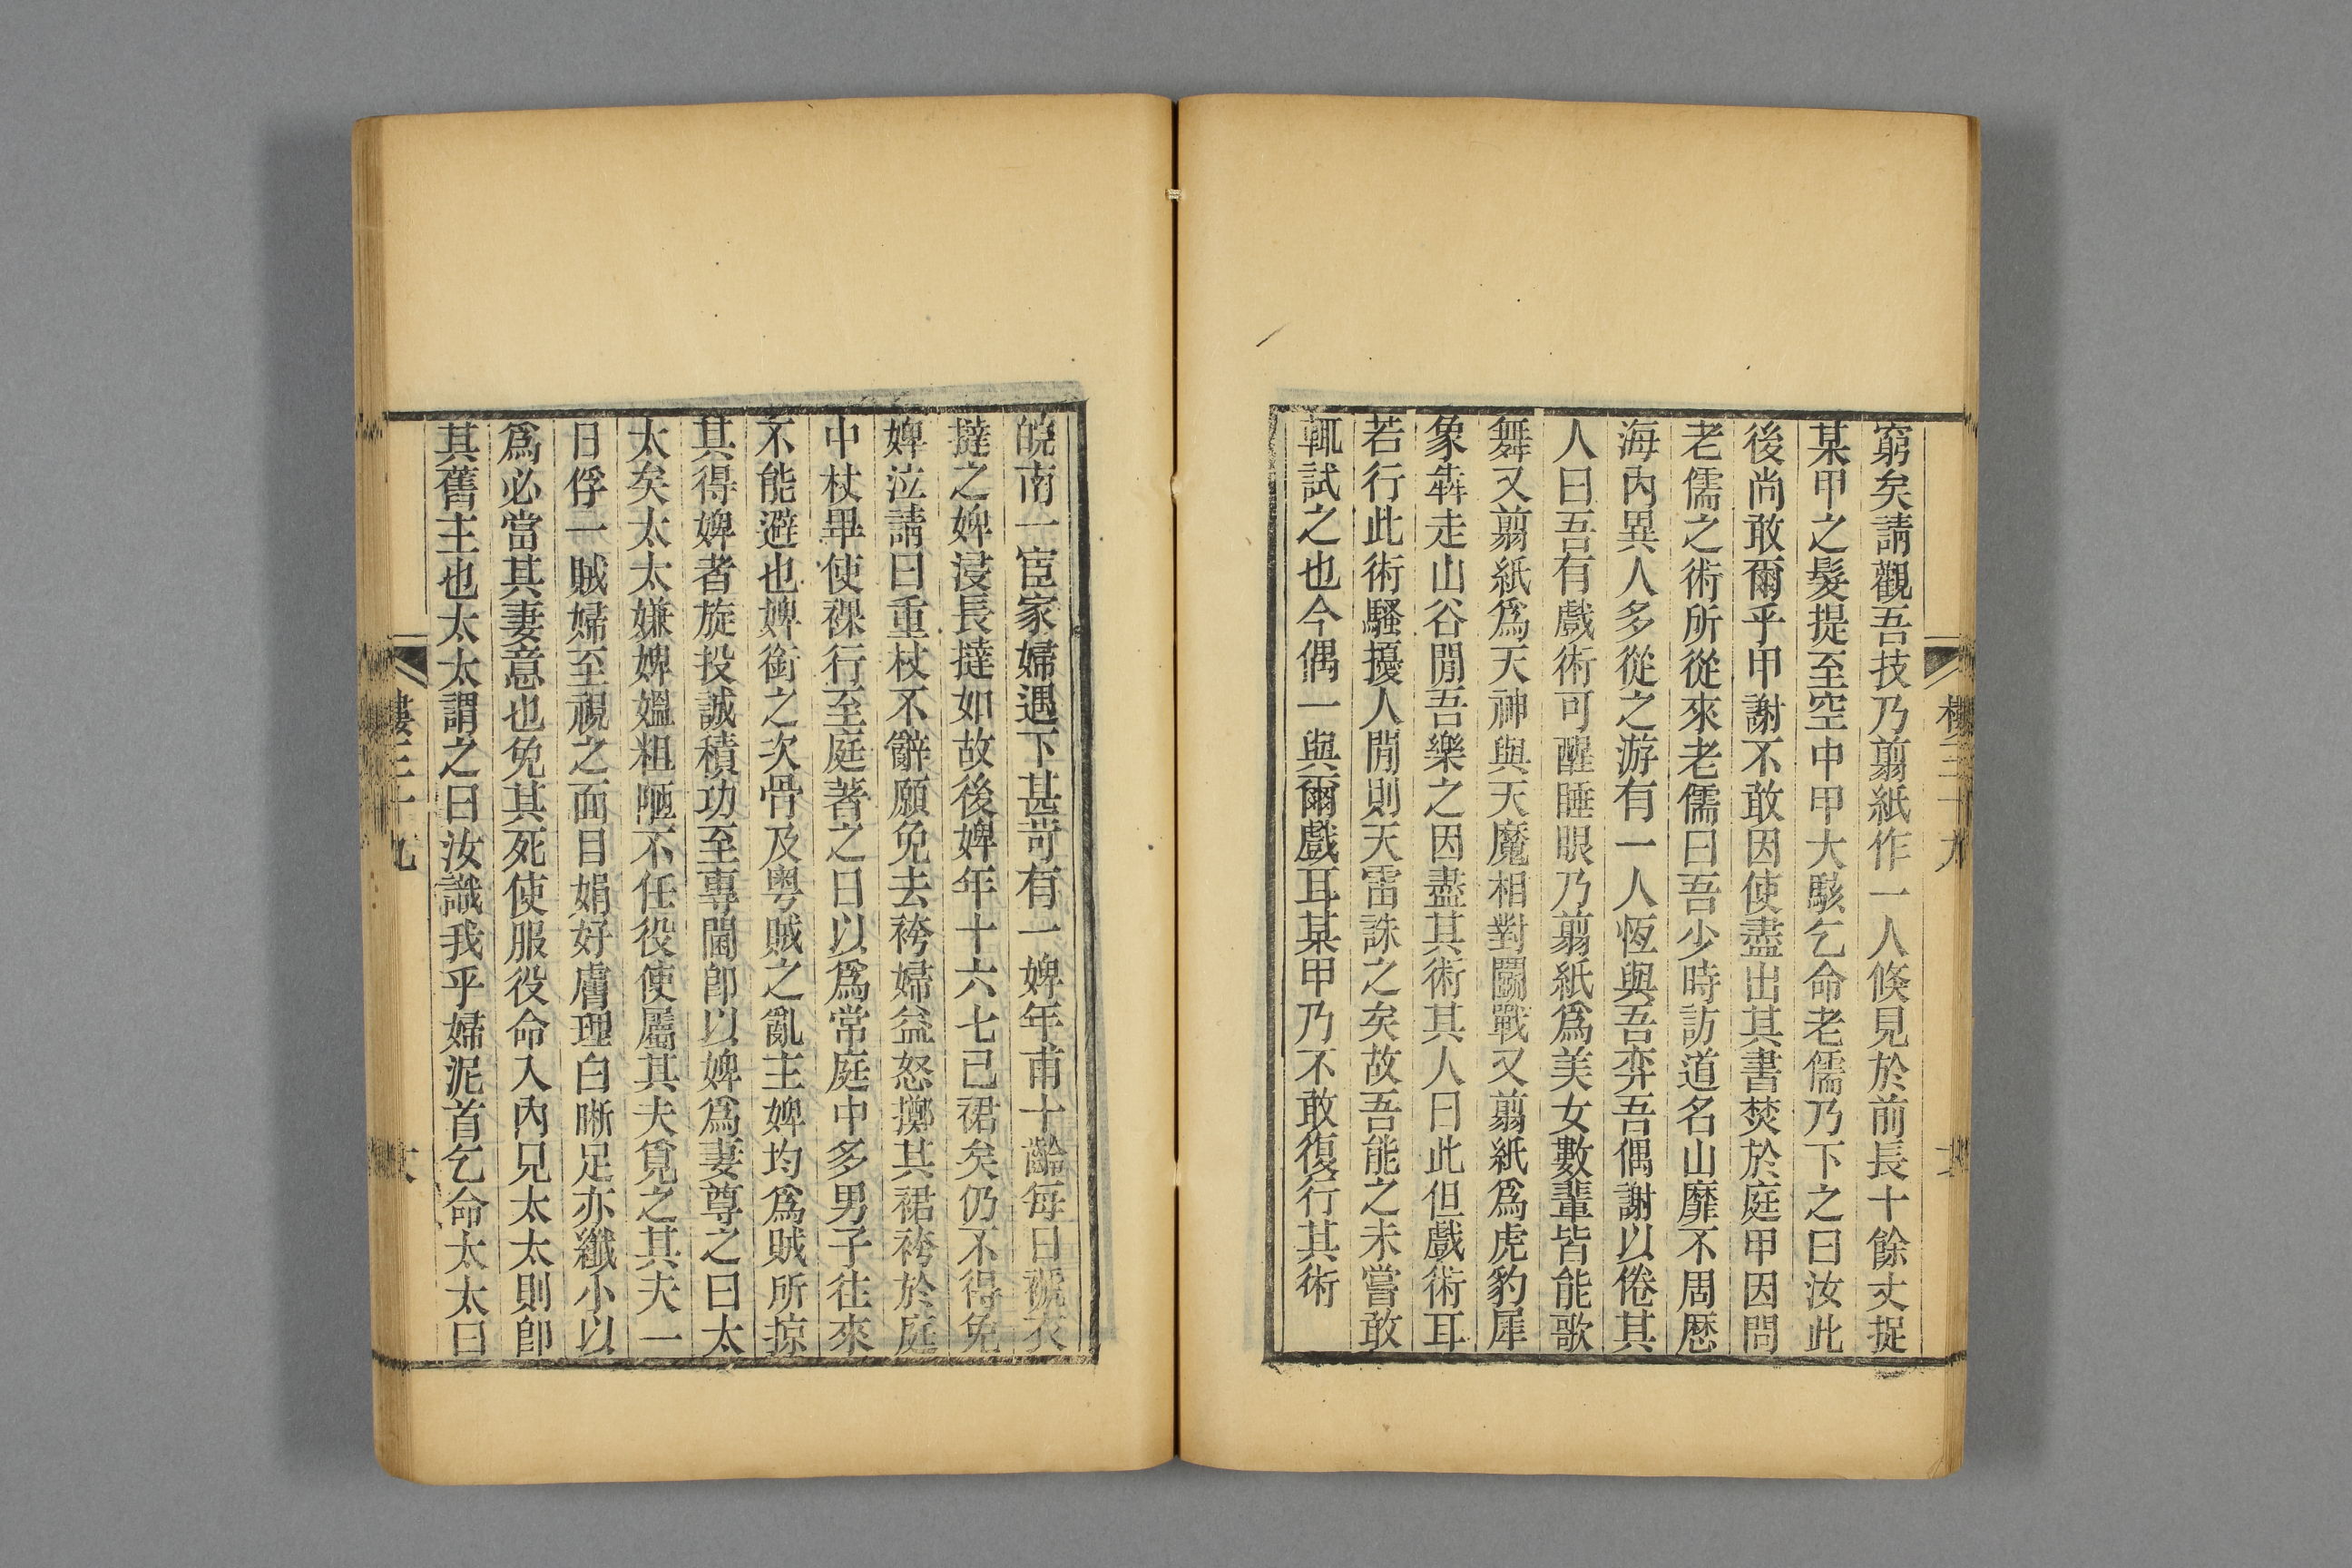 窮矣請觀吾技乃翦紙作一人倐見於前長十餘丈捉
某甲之髮提至空中甲大駭乞命老儒乃下之曰汝此
後尚敢爾乎甲謝不敢因使盡出其書焚於庭甲因問
老儒之術所從來老儒曰吾少時訪道名山靡不周歷
海內異人多從之游有一人恆與吾弈吾偶謝以倦其
人曰吾有戲術可醒睡眼乃翦紙爲美女數輩皆能歌
舞又翦紙爲天神與天魔相對鬭戰又翦紙爲虎豹犀
象犇走山谷閒吾樂之因盡其術其人曰此但戲術耳
若行此術騷擾人閒則天雷誅之矣故吾能之未嘗敢
輒試之也今偶一與爾戲耳某甲乃不敢復行其術
皖南一宦家婦遇下甚苛有一婢年甫十齡每日褫衣
撻之婢浸長撻如故後婢年十六七已裙矣仍不得免
婢泣請曰重杖不辭願免去袴婦益怒擲其裙袴於庭
中杖畢使裸行至庭著之日以爲常庭中多男子往來
不能避也婢銜之次骨及粵賊之亂主婢均爲賊所掠
其得婢者旋投誠積功至專閫卽以婢爲妻尊之曰太
太矣太太嫌婢媼粗陋不任役使屬其夫覓之其夫一
日俘一賊婦至視之面目娟好膚理白晰足亦纖小以
爲必當其妻意也免其死使服役命入內見太太則卽
其舊主也太太謂之曰汝識我乎婦泥首乞命太太曰
樓三十九